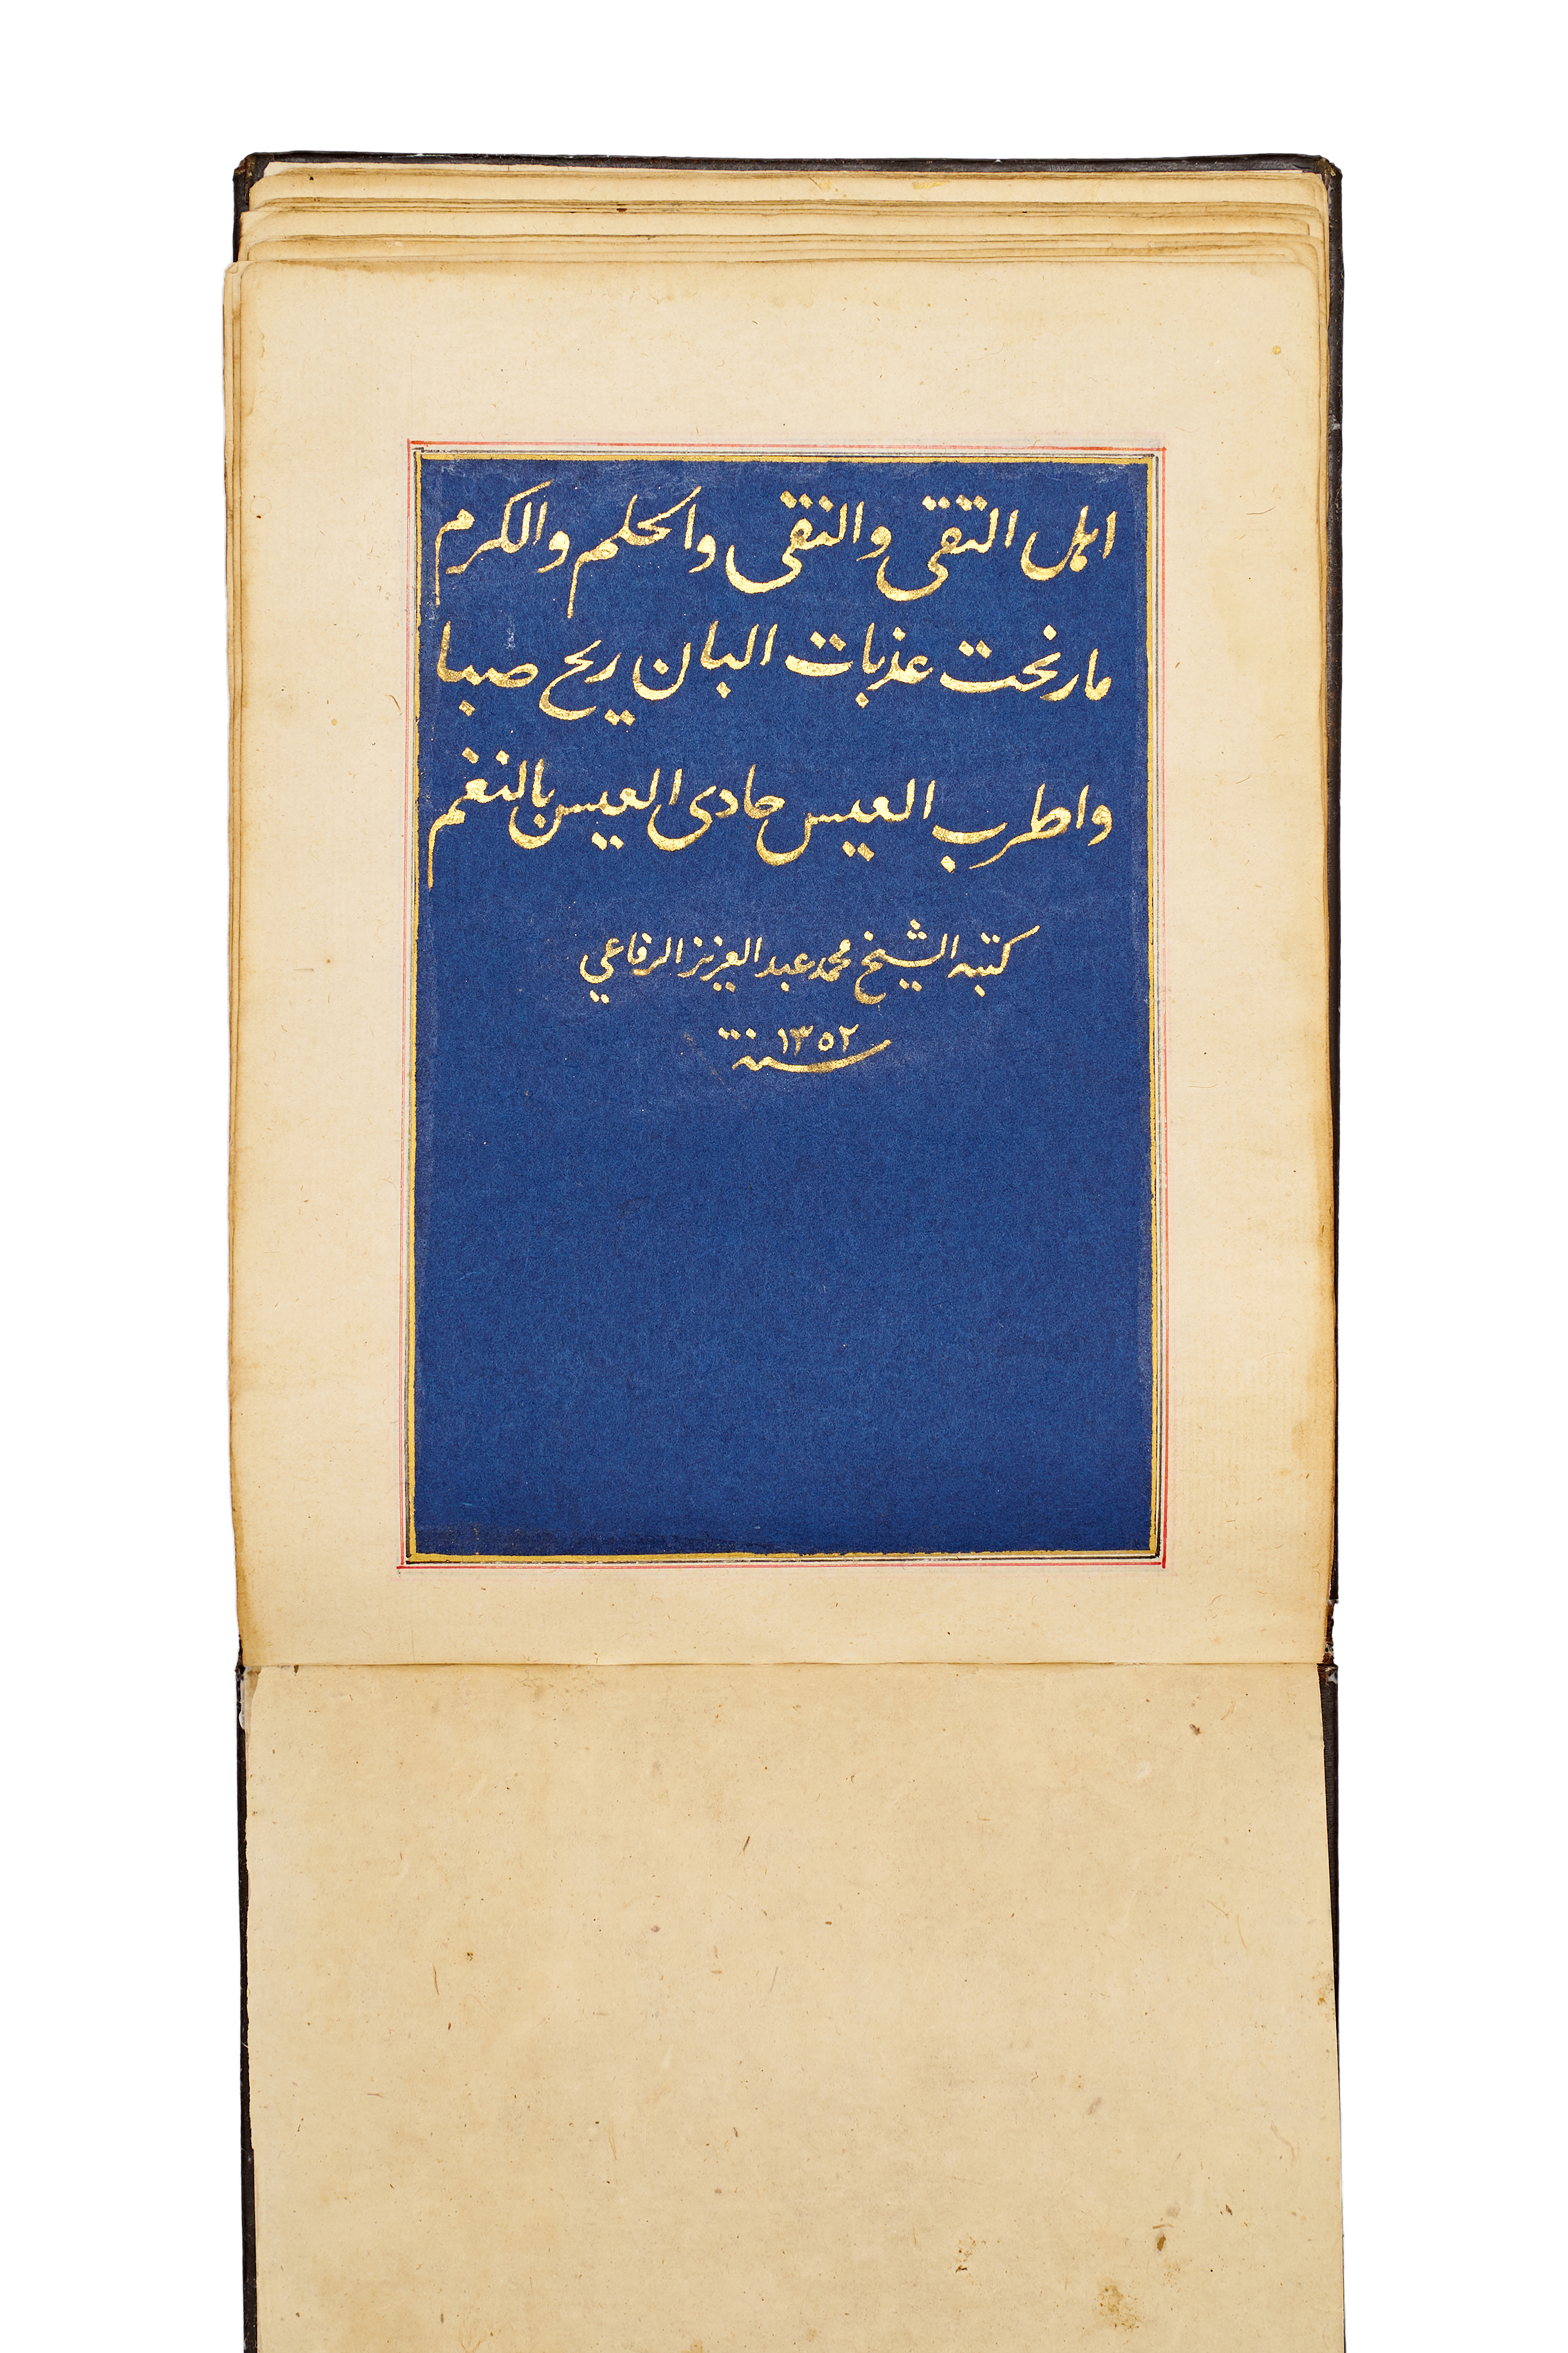 اهل التقى والنقى والحلم والكرم
مارنحت عذبات البان ريح صبا
واطرب العيس حادى العيس بالنغم
كتبه الشيخ محمد عبد العزيز الرفاعي
سنة ١٣٥٢